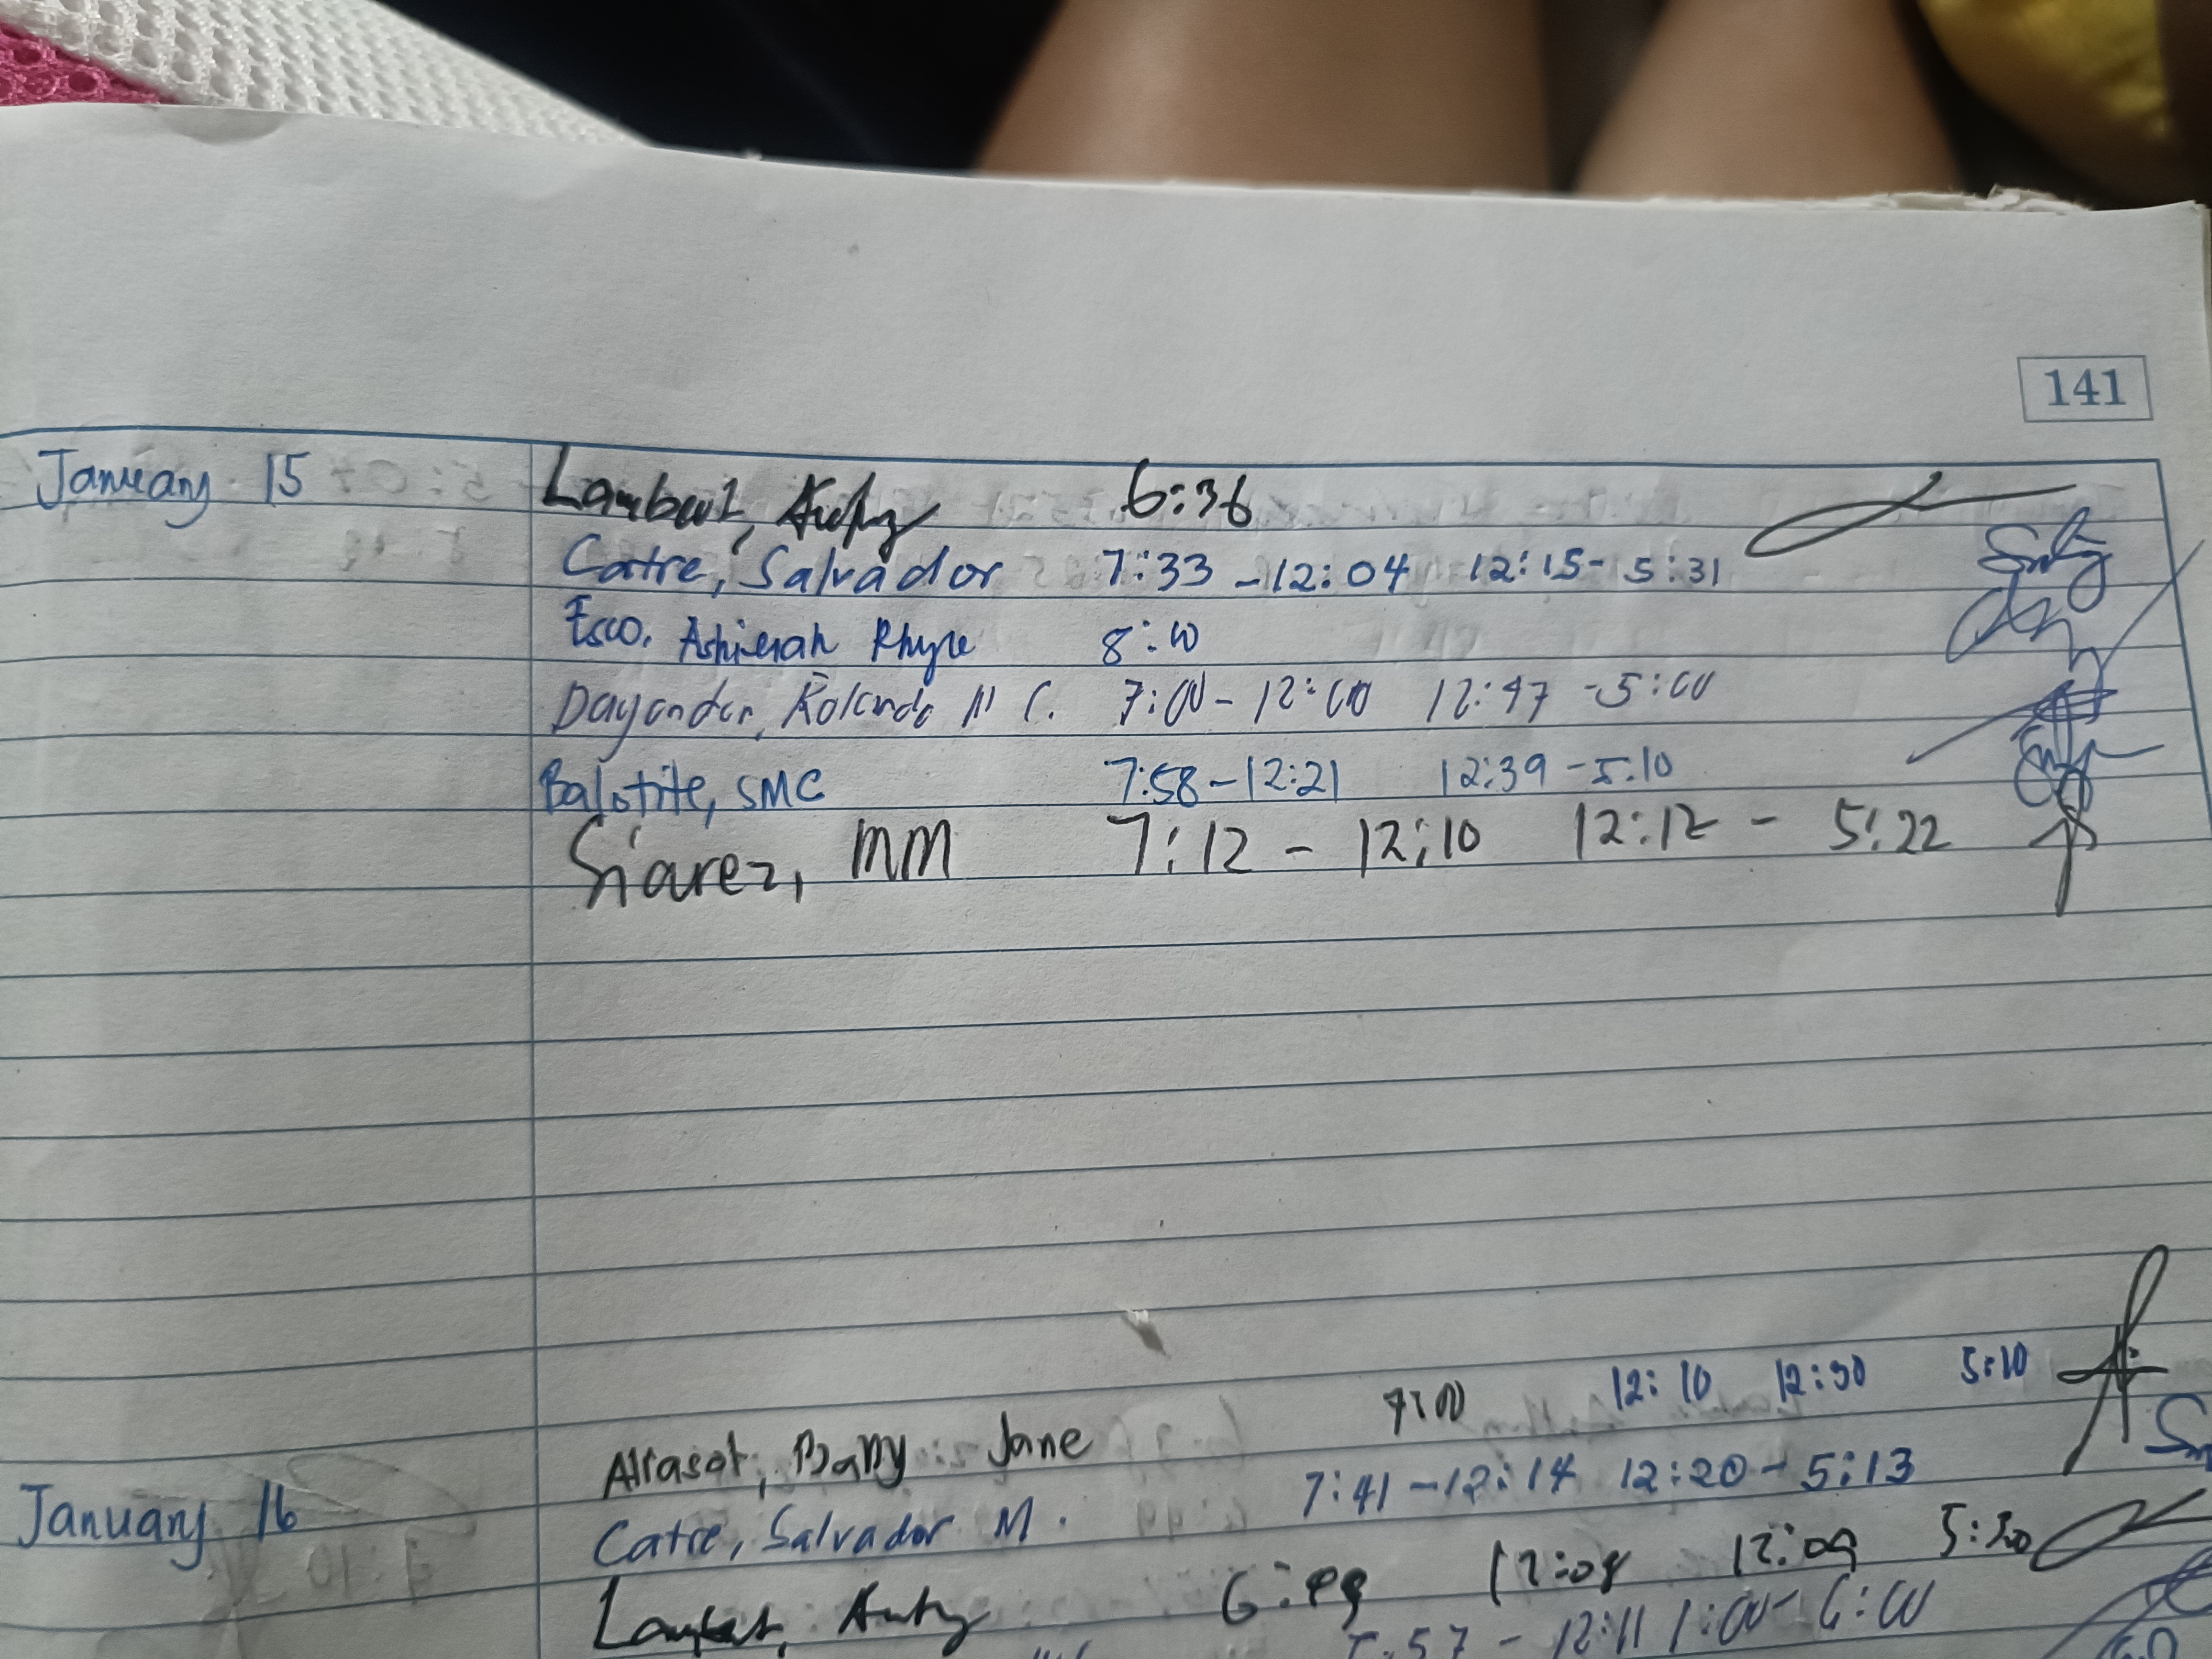 141
January 15 Lambert, 6:36
Catre, Salvador 7:33 - 12:04 12:15 - 5:31
Esco, Rhyze 8:00
Dayandan, Rolando III C. 7:00 - 12:00 12:47 - 5:00
Balotite, SMC 7:58 - 12:21 12:39 - 5:10
Siarez, MM 7:12 - 12:10 12:12 - 5:22
Jane 7:00 12:10 12:30 5:10
January 16 Catre, Salvador M. 7:41 - 12:14 12:20 - 5:13
12:08 12:09 5:30
57 - 12:11 1:00 - 6:00